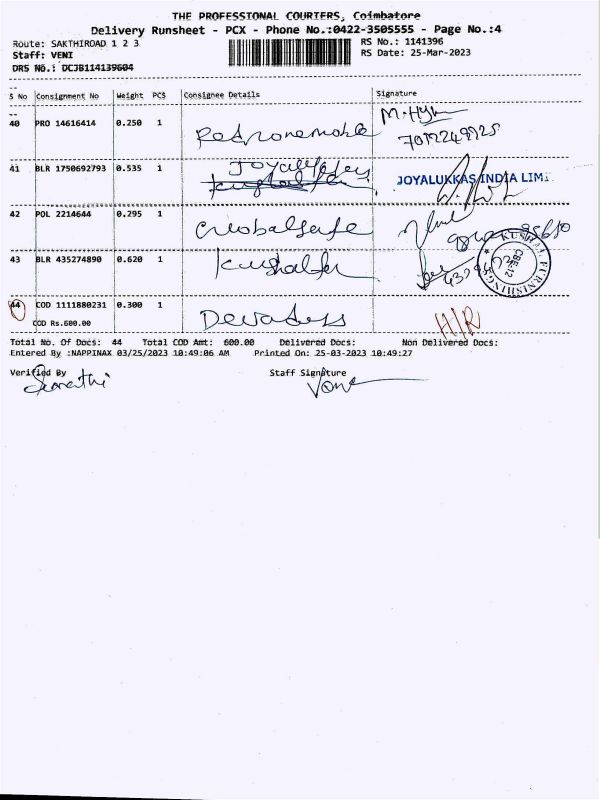 THE PROFESSIONAL COURIERS, Coimbatore
Delivery Runsheet - PCX - Phone No.:0422-3505555 - Page No.:4
Route: SAKTHIROAD 1 2 3
RS No.: 1141396
Staff: VENI
RS Date: 25-Mar-2023
DRS No.: DCJB114139604
S No Consignment No Weight PCS Consignee Details Signature
40 PRO 14616414 0.250 1
41 BLR 1750692793 0.535 1 JOYALUKKAS INDIA LIMI
42 POL 2214644 0.295 1
43 BLR 435274890 0.620 1
KUSHAL FURNISHING
CBE-12
44 COD 1111880231 0.300 1 H/R
COD Rs.600.00
Total No. Of Docs: 44 Total COD Amt: 600.00 Delivered Docs: Non Delivered Docs:
Entered By :NAPPINAX 03/25/2023 10:49:06 AM Printed On: 25-03-2023 10:49:27
Verified By Staff Signature